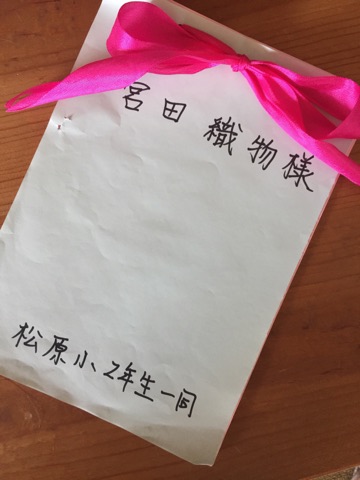 宮田織物様
松原小2年生一同